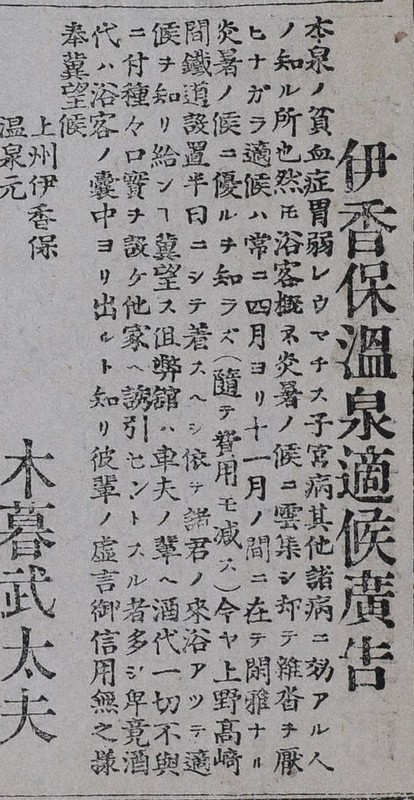 伊香保溫泉適候廣吿
本泉ノ貧血症胃弱レウマチス子宮病其他諸病ニ効アル人
ノ知ル所也然モ浴客概ネ炎暑ノ候ニ雲集シ却テ雜沓ヲ厭
ヒナガラ適候ハ常ニ四月ヨリ十一月ノ間ニ在テ閑雅ナル
炎暑ノ候ニ優ルヲ知ラズ(隨テ費用モ减ス)今ヤ上野高崎
間鐵道設置半日ニシテ着スヘシ依テ諸君ノ來浴アツテ適
候ヲ知リ給ンヿ冀望ス但弊館ハ車夫ノ輩ヘ酒代一切不與
ニ付種々口實ヲ設ケ他家ヘ誘引セントスル者多シ畢竟酒
代ハ浴客ノ囊中ヨリ出ルト知リ彼輩ノ虛言御信用無之樣
奉冀望候
上州伊香保
溫泉元
木暮武太夫